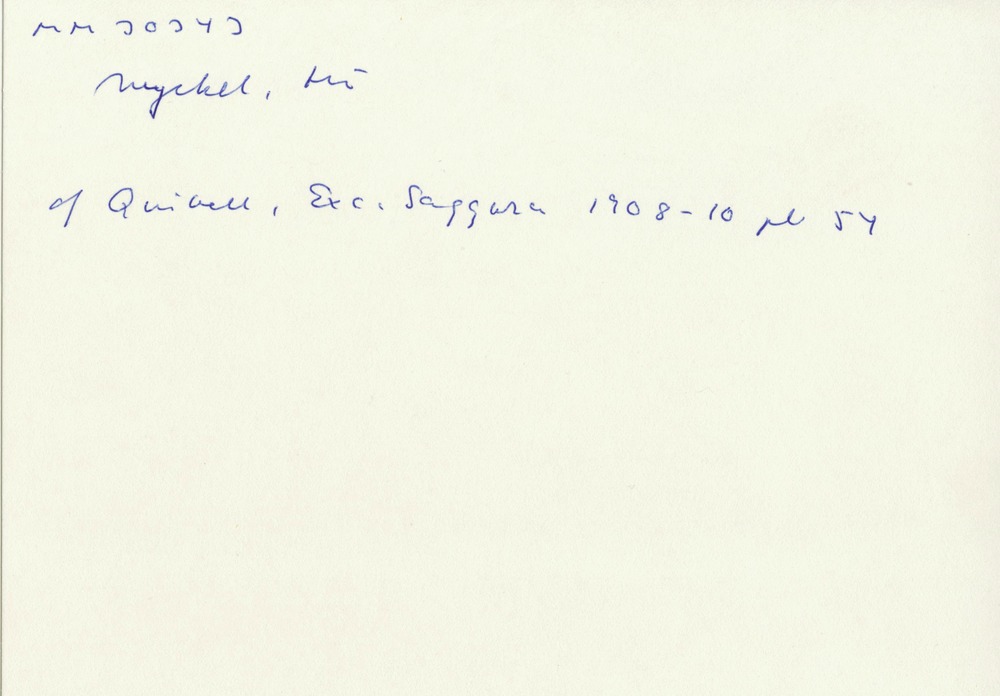 MM 30343
Nyckel, trä
cf Quibell, Exc. Saqqara 1908-10 pl 54